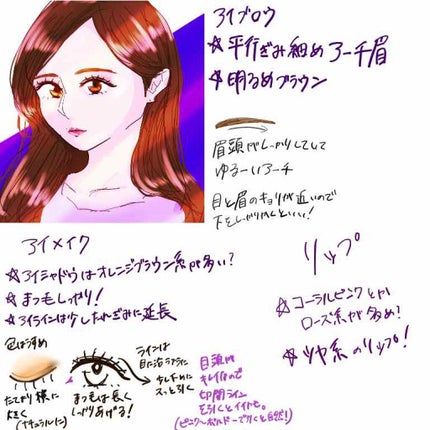 アイブロウ
☆平行ぎみ細め アーチ眉
☆明るめブラウン
眉頭がしっかりしてて
ゆるーいアーチ
目と眉のキョリが近いので
下をしっかりかくといい!
アイメイク
☆アイシャドウはオレンジブラウン系が多い?
☆まつもしっかり!
☆アイラインは少したれぎみに延長
リップ
☆コーラルピンクとか
ローズ系が多め?
☆ツヤ系のリップ!
はうすめ
たてより横に
大きく
(ナチュラルに)
まつ毛は長く
しっかりあげる!
ラインは
目に沿うように
キレ下めに
スッと引く
目頭が
キレイなので
切開ライン
を引くとイイかも。
(ピンク〜ボルドーで引くと自然!)